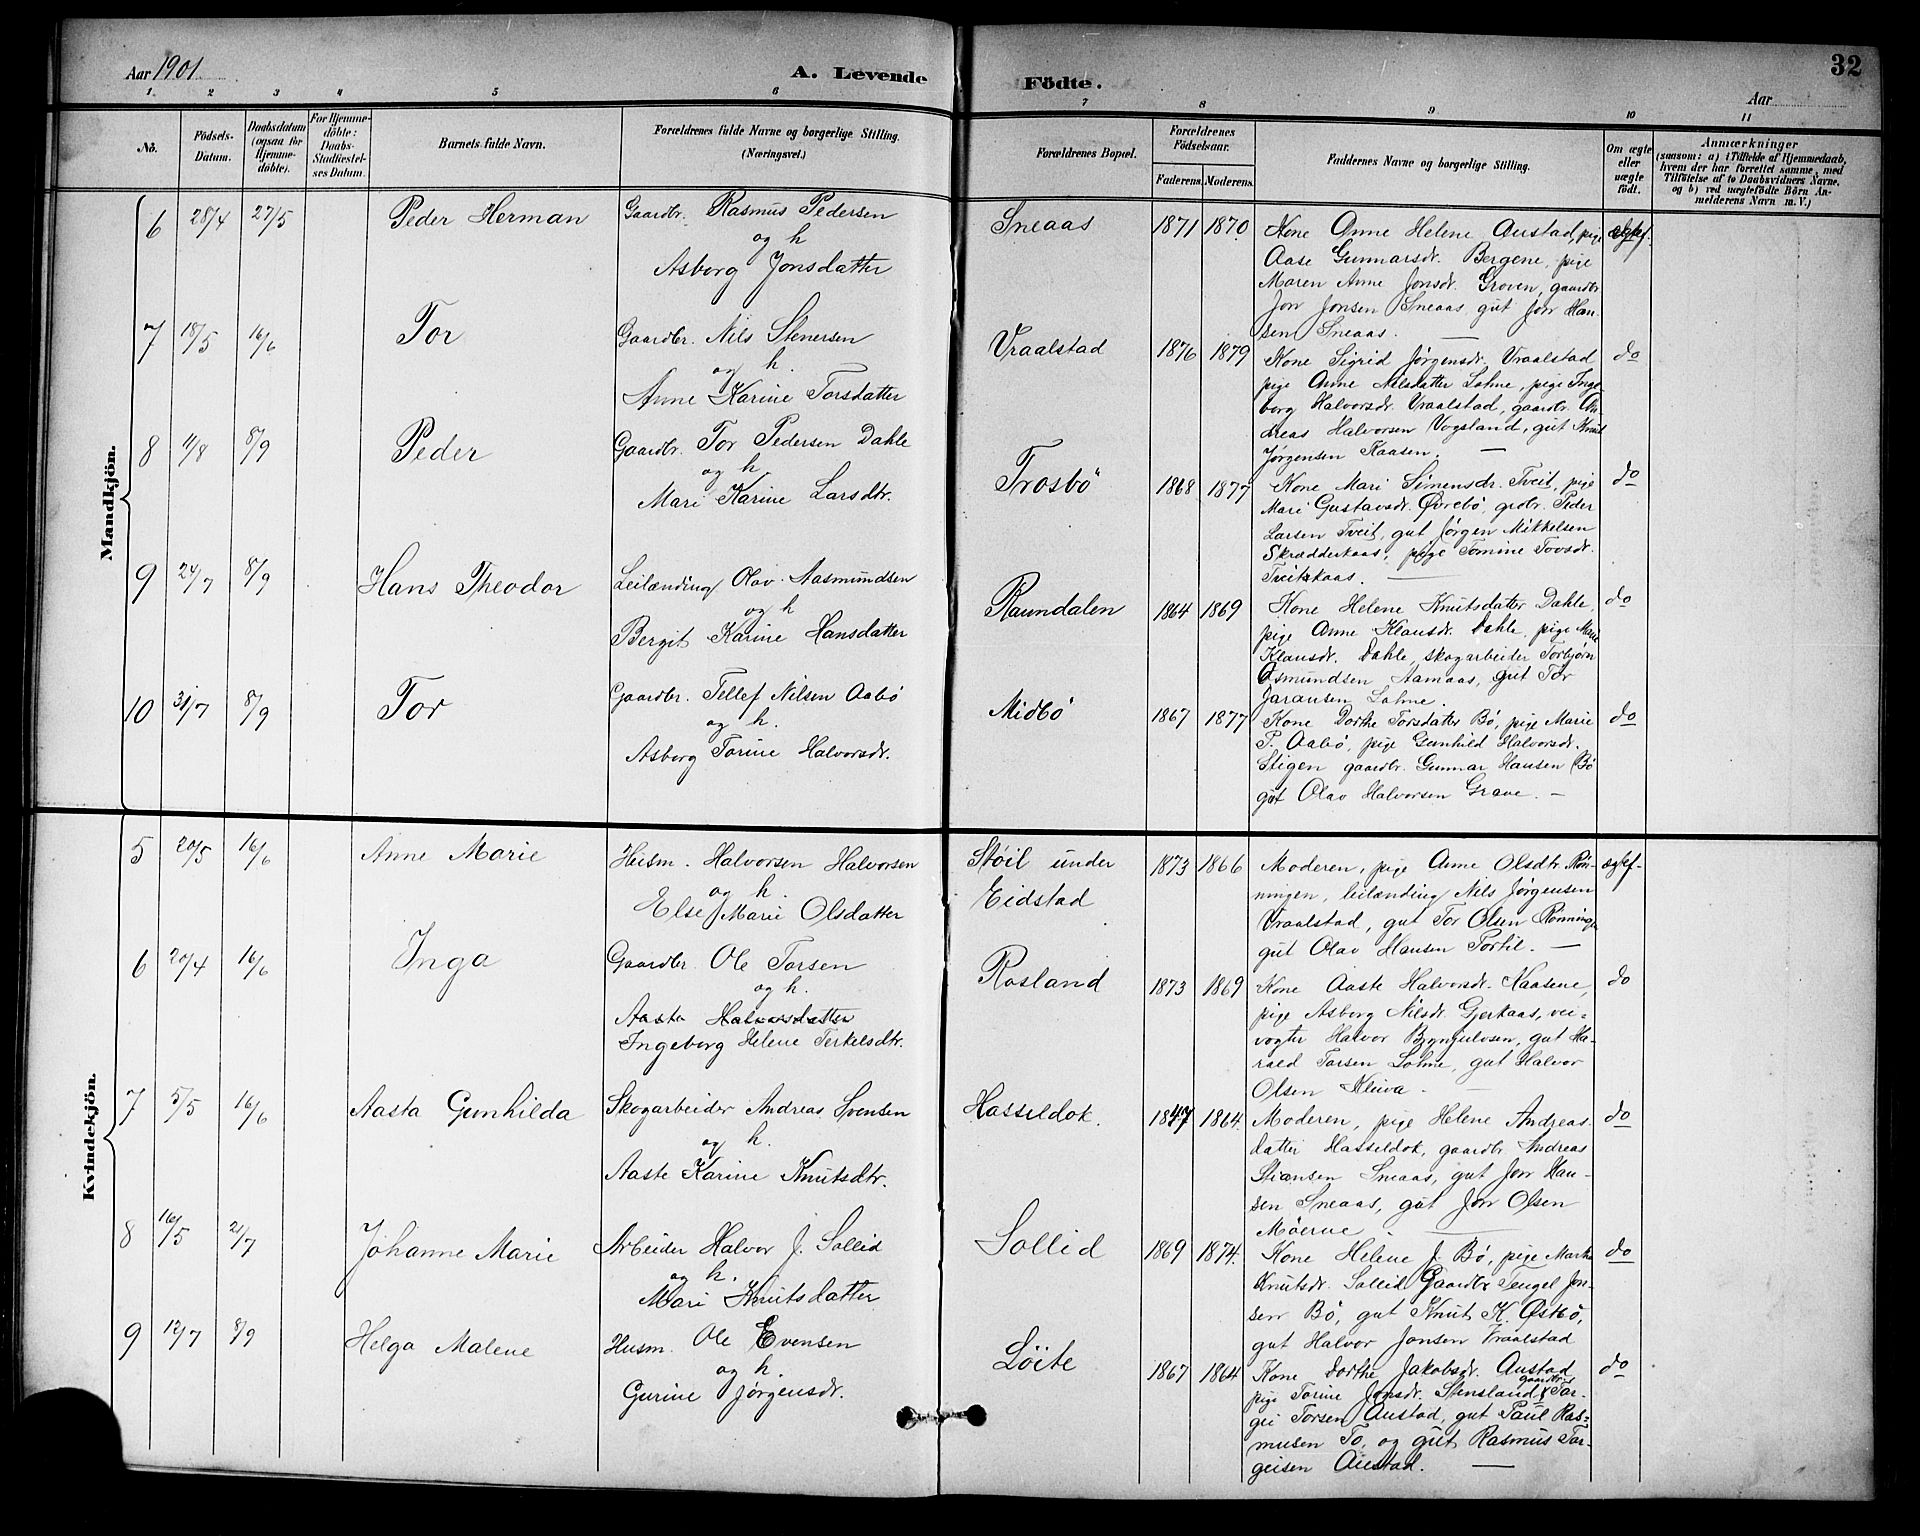 Aar 1901
A. Levende Födte.
32
Aar
1 2 3 4 5 6 7 8 9 10 11
No.
Födsels-
Datum.
Daabsdatum
(ogsaa for
Hjemme-
döbte).
For Hjemme-
döbte:
Daabs-
Stadfæstel-
ses Datum.
Barnets fulde Navn.
Forældrenes fulde Navne og borgerlige Stilling.
(Næringsvei.)
Forældrenes Bopæl.
Forældrenes
Födselsaar.
Faderens. Moderens.
Faddernes Navne og borgerlige Stilling.
Om ægte
eller
uægte
födt.
Anmærkninger
(saasom: a) i Tilfælde af Hjemmedaab,
hvem der har forrettet samme, med
Tilföielse af to Daabsvidners Navne,
og b) ved uægtefödte Börn An-
melderens Navn m. V.)
Mandkjön.
6 28/4 27/5 Peder Herman
Gaardbr. Rasmus Pedersen
og h
Asborg Jonsdatter
Sneaas 1871 1870.
Kone Anne Helene Austad, pige
Aase Gunnarsdr. Bergene, pige
Maren Anne Jonsdr. Groven, gaardbr
Jon Jonsen Sneaas, gut Jon Han-
sen Sneaas. —
ægtef.
7 18/5 16/6 Tor
Gaardbr. Nils Stenersen
og h.
Anne Karine Torsdatter
Vraalstad 1876 1879
Kone Sigrid Jørgensdr. Vraalstad
pige Anne Nilsdatter Lohne, pige Inge-
borg Halvorsdr. Vraalstad, gaardbr. An-
dreas Halvorsen Vogsland, gut Knut
Jørgensen Kaasen. —
do
8 11/8 8/9 Peder
Gaardbr. Tor Pedersen Dahle
og h.
Mari Karine Larsdtr.
Trosbö 1868 1877
Kone Mari Simensdr. Tveit, pige
Mari Gustavsdr. Øvrebö, grdbr. Peder
Larsen Tveit, gut Jørgen Mikkelsen
Skrædderkaas, pige Tomine Tovsdr.
Tveitekaas. —
do
9 24/7 8/9 Hans Theodor
Leilænding Olav Aasmundsen
og h
Bergit Karine Hansdatter
Raundalen 1864 1869
Kone Helene Knutsdatter Dahle,
pige Anne Klausdr. Dahle, pige Marie
Klausdr. Dahle, skogarbeider Torbjørn
Osmundsen Aamaas, gut Tor
Jaransen Lohne.
do
10 31/7 8/9 Tor
Gaardbr. Tellef Nilsen Aabø
og h.
Asborg Torine Halvorsdr.
Midbö 1867 1877
Kone Dorthe Torsdatter Bö, pige Marie
P. Aabø, pige Gunhild Halvorsdr.
Stigen gaardbr. Gunnar Hansen Bö
gut Olav Halvorsen Grave. —
do
Kvindekjön.
5 20/5 16/6 Anne Marie
Husm. Halvorsen Halvorsen
og h.
Else Marie Olsdatter
Støil under
Eidstad
1873 1866
Moderen, pige Anne Olsdtr. Røn-
ningen, leilænding Nils Jørgensen
Vraalstad, gut Tor Olsen Rønningen
gut Olav Hansen Tortil. —
ægtef-
6 20/4 16/6 Inga
Gaardbr Ole Torsen
og h.
Aasta Halvorsdatter
Ingeborg Helene Terkelsdtr.
Rosland 1873 1869
Kone Aaste Halvorsdr. Naasene,
pige Asborg Nilsdr. Gjerkaas, vei-
vogter Halvor Brynjulvsen, gut Ha-
rald Torsen Lohne, gut Halvor
Olsen Kleiva. —
do
7 5/5 16/6 Aasta Gunhilda
Skogarbeider Andreas Svensen
og h.
Aaste Karine Knutsdtr.
Hasseldok. 1847 1864.
Moderen, pige Helene Andreas-
datter Hasseldok, gaardbr Andreas
Stiansen Sneaas, gut Jon Han-
sen Sneaas, gut Jon Olsen
Möerne. —
do
8 16/5 21/7 Johanne Marie
Arbeider Halvor J. Sollid
og h.
Mari Knutsdatter
Sollid 1869 1874.
Kone Helene J. Bö, pige Marthe
Knutsdr. Sollid Gaardbr Tengel Jon-
sen Bö, gut Knut K. Østbö,
gut Halvor Jonsen Vraalstad
do
9 12/7 8/9 Helga Malene
Husm. Ole Evensen
og h.
Gurine Jørgensdr.
Löite 1867 1864
Kone Dorthe Jakobsdr. Austad
pige Torine Jonsdr. Stensland, gaardbr Tor-
gei Torsen Austad, gut Paul Ras-
musen To, og gut Rasmus Tor-
geisen Austad. —
do